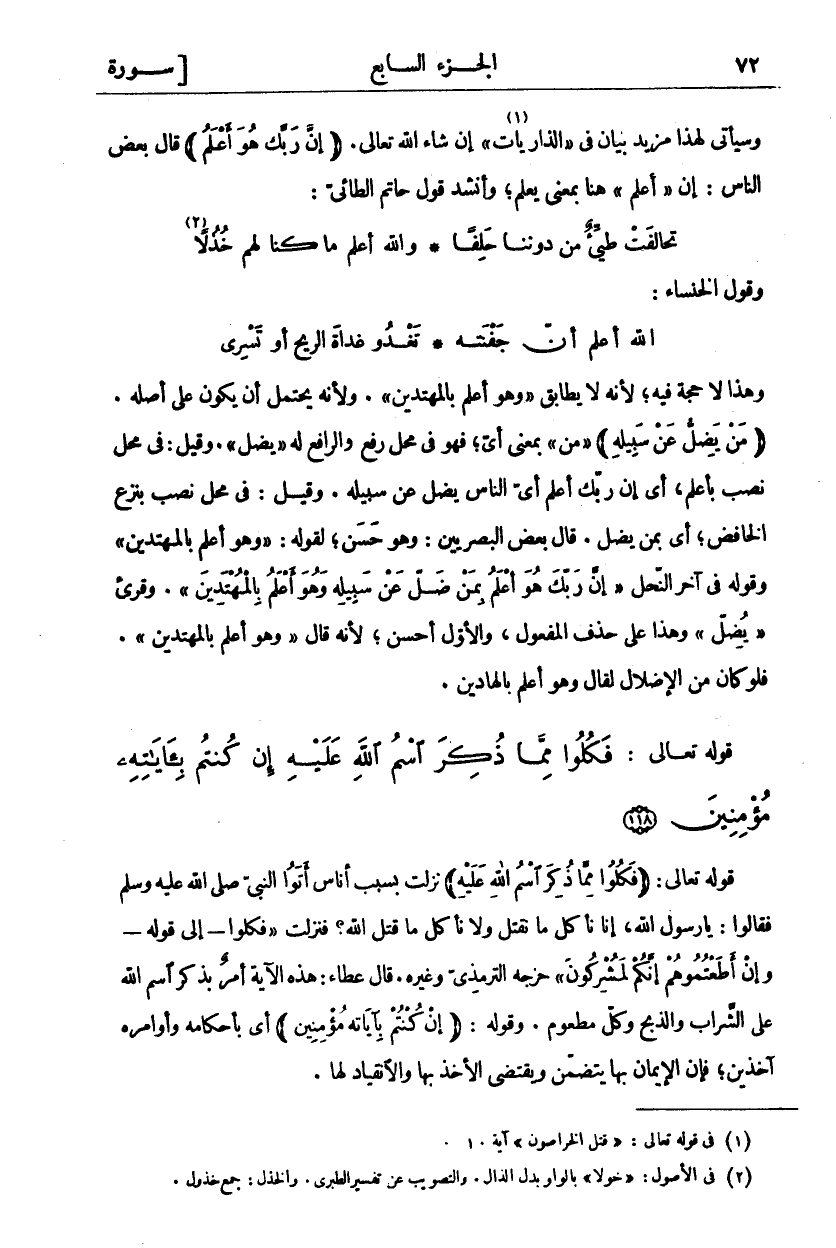 ٧٢ الجـزء السـابع [ســورة
وسيأتى لهذا مزيد بيان فى «الذاريات»(١) إن شاء الله تعالى. ﴿ إِنَّ رَبَّكَ هُوَ أَعْلَمُ ﴾ قال بعض
الناس : إن « أعلم » هنا بمعنى يعلم؛ وأنشد قول حاتم الطائىّ :
تحالفَتْ طيّئٌ من دوننا حَلِفًا * والله أعلم ما كنا لهم خُذُلَا(٢)
وقول الخنساء :
الله أعلم أنّ جَفْنَتـه * تَغْـدُو غداةَ الريح أو تَسْرِى
وهذا لا حجة فيه؛ لأنه لا يطابق «وهو أعلم بالمهتدين» . ولأنه يحتمل أن يكون على أصله .
﴿ مَنْ يَضِلُّ عَنْ سَبِيلِهِ ﴾ «من» بمعنى أىّ؛ فهو فى محل رفع والرافع له «يضل». وقيل: فى محل
نصب بأعلم، أى إن ربّك أعلم أىّ الناس يضل عن سبيله . وقيـل : فى محل نصب بنزع
الخافض؛ أى بمن يضل . قال بعض البصريين : وهو حَسَن؛ لقوله : «وهو أعلم بالمهتدين»
وقوله فى آخر النّحل « إِنَّ رَبَّكَ هُوَ أَعْلَمُ بِمَنْ ضَلَّ عَنْ سَبِيلِهِ وَهُوَ أَعْلَمُ بِالْمُهْتَدِينَ » . وقرئ
« يُضِلّ » وهذا على حذف المفعول ، والأوّل أحسن ؛ لأنه قال « وهو أعلم بالمهتدين » .
فلو كان من الإضلال لقال وهو أعلم بالهادين .
قوله تعـالى : فَكُلُوا مِمَّا ذُكِرَ ٱسْمُ ٱللَّهِ عَلَيْهِ إِن كُنتُم بِـَٔايَـٰتِهِۦ
مُؤْمِنِينَ ١١٨
قوله تعالى: ﴿فَكُلُوا مِمَّا ذُكِرَ ٱسْمُ اللهِ عَلَيْهِ﴾ نزلت بسبب أناس أَتَوُا النبىّ صلى الله عليه وسلم
فقالوا : يا رسول الله، إنا نأكل ما نقتل ولا نأكل ما قتل الله؟ فنزلت «فكلوا ــ إلى قوله ــ
وَإِنْ أَطَعْتُمُوهُمْ إِنَّكُمْ لَمُشْرِكُونَ» خرجه الترمذىّ وغيره. قال عطاء: هذه الآية أمرٌ بذكر ٱسم الله
على الشّراب والذبح وكلّ مطعوم . وقوله : ﴿ إِنْ كُنْتُمْ بِآيَاتِهِ مُؤْمِنِينَ ﴾ أى بأحكامه وأوامره
آخذين؛ فإن الإيمان بها يتضمّن ويقتضى الأخذ بها والٱنقياد لها .
(١) فى قوله تعالى : « قتل الخراصون » آية ١٠ .
(٢) فى الأصول : «خولا» بالواو بدل الذال . والتصويب عن تفسير الطبرى . والخذل : جمع خذول .